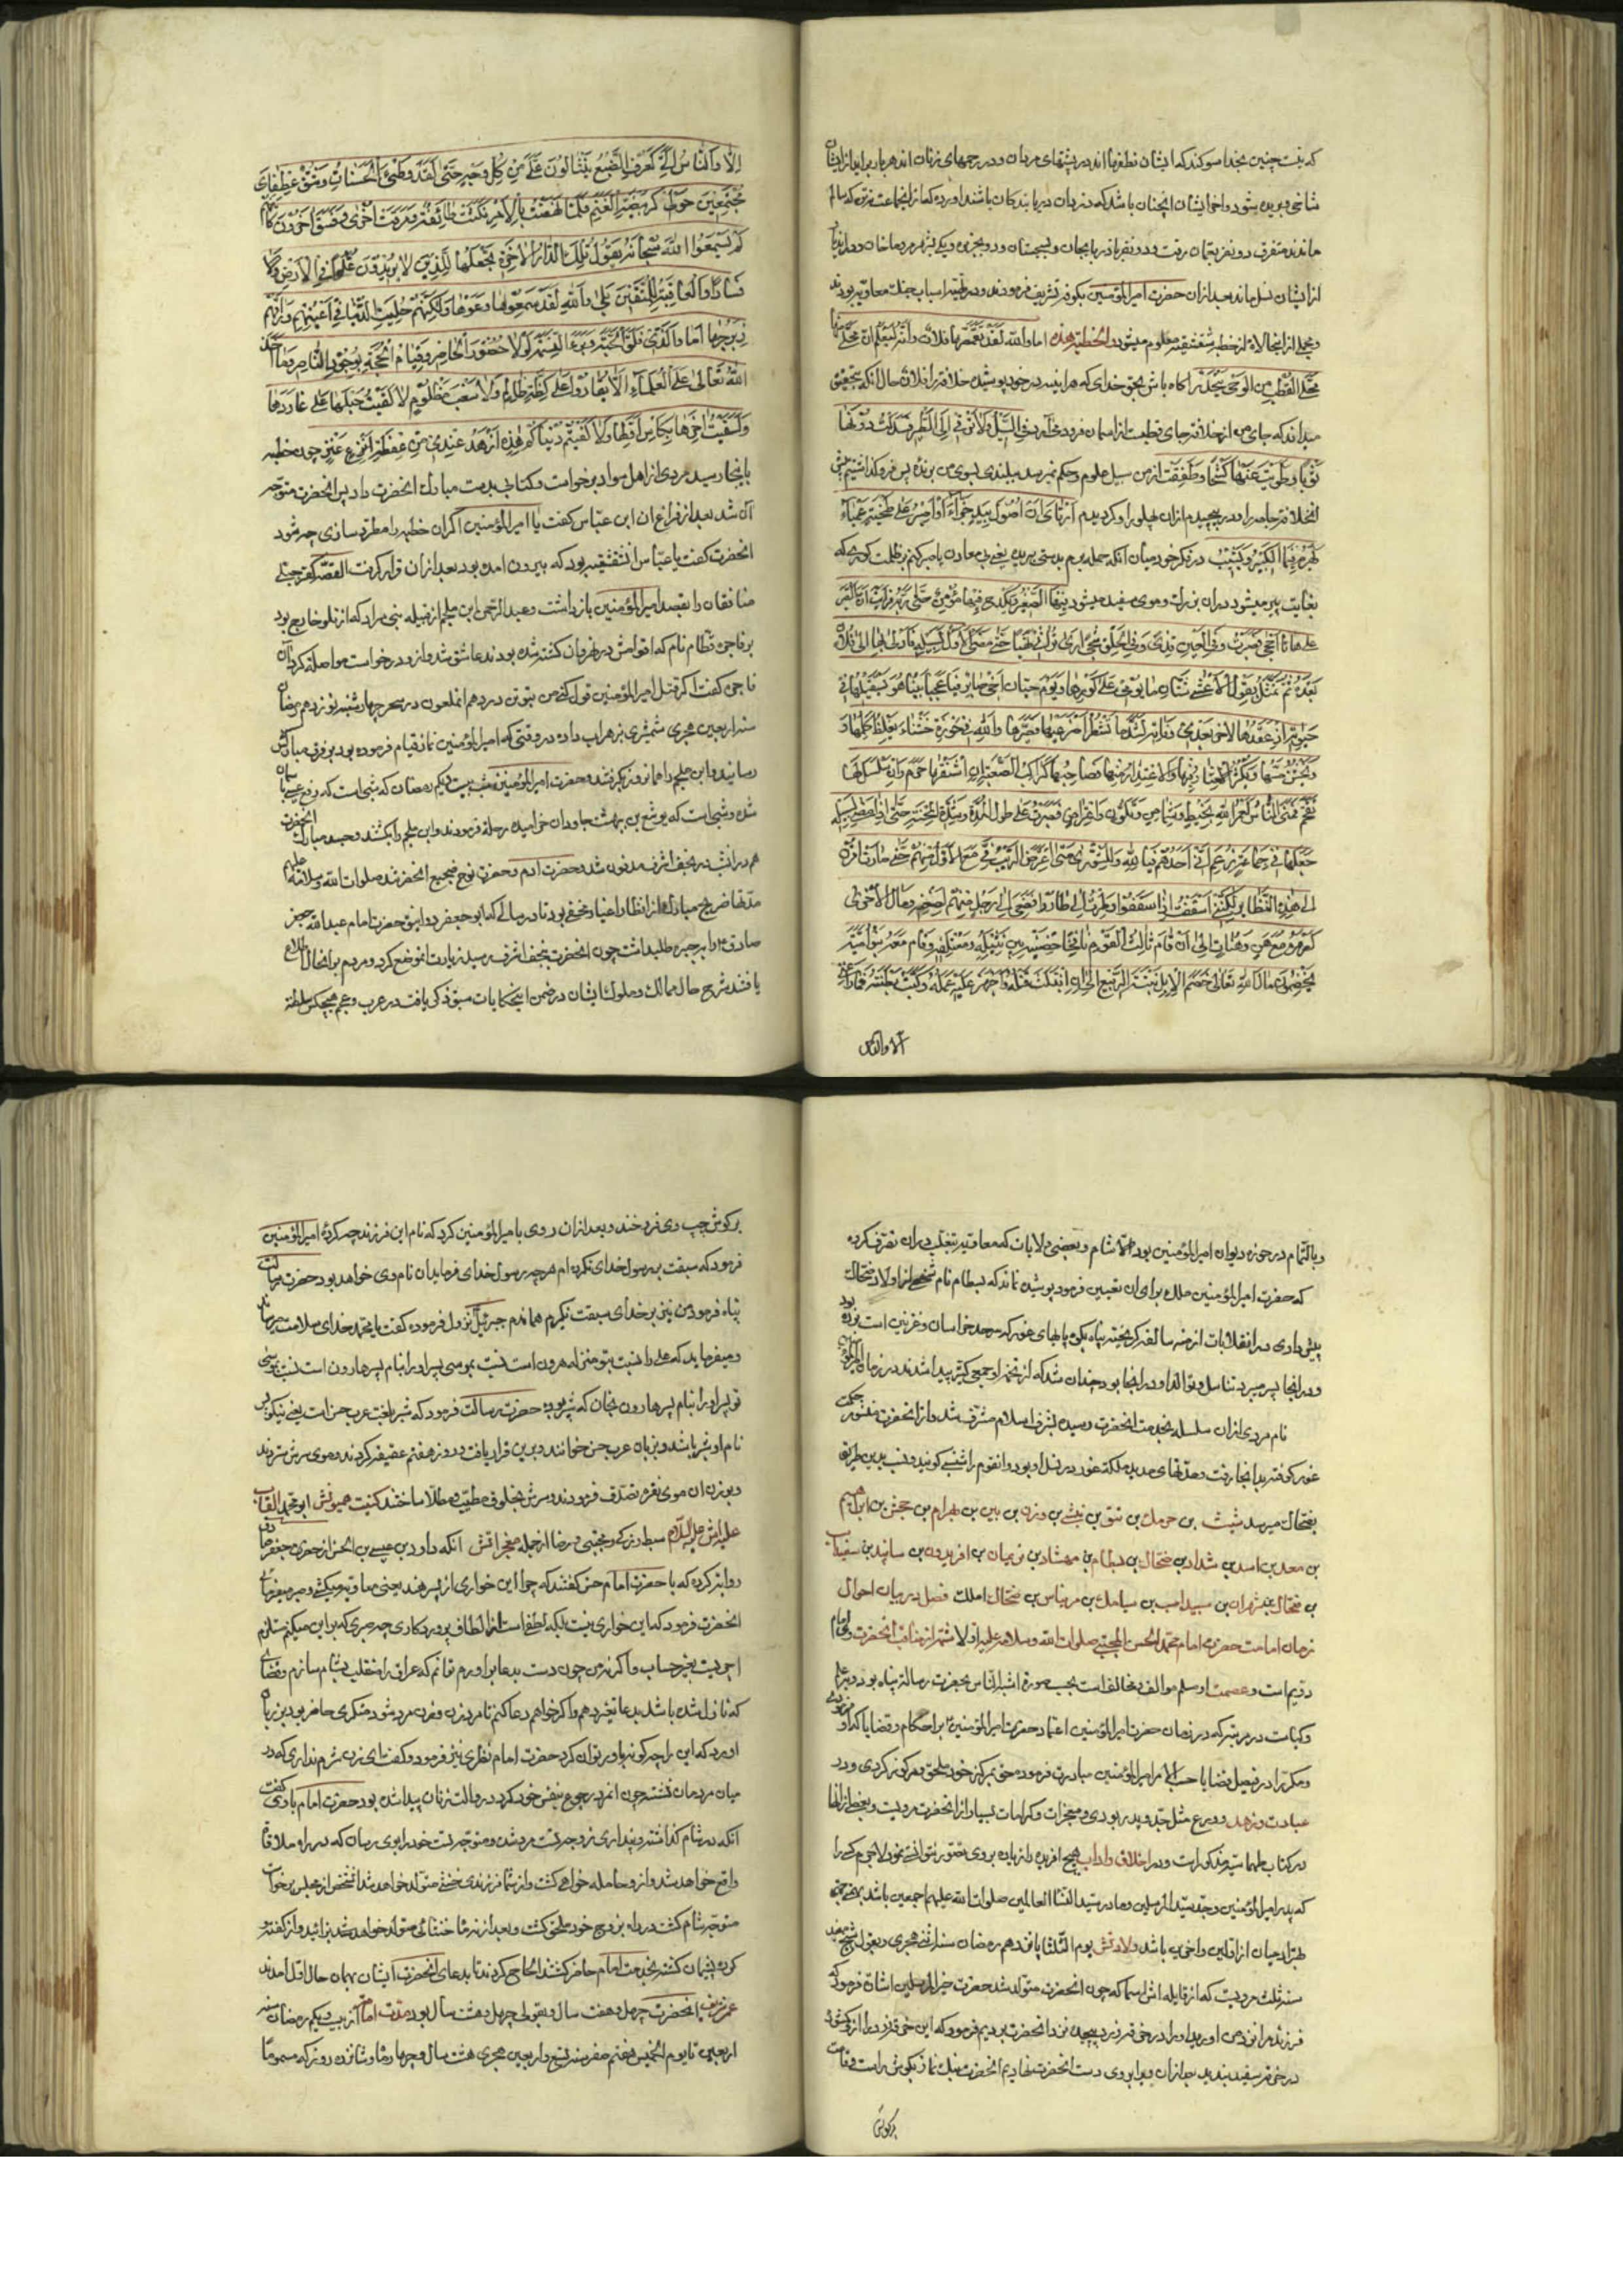 که نیست چنین بخدا سوکند که ایشان نطفها اند در پشتهای مردان و در رحمهای زنان اند هر بار برآید از ایشان
شاخی بریده شود و آخر ایشان آنچنان باشد که دزدان و
ماندند متفرق دو نفر بعمان رفت و دو نفر باذربایجان و بسجستان و دو بجزیره و یکی
از ایشان نسل ماند بعد از ان حضرت امیرالمؤمنین بکوفه تشریف فرمودند و در تهیه اسباب جنک معاویه بودند
از خطبه شقشقیه معلوم میشود والخطبة هذه اما والله لقد تقمصها فلان وانه لیعلم ان محلی منها
محل القطب من الرحی آکاه باش بحق خدای که هر آینه در خود پوشید خلافت را فلان و حال آنکه بتحقیق
میداند که جای من از خلافت جای قطبست از آسیا ینحدر عنی السیل ولا یرقی الی الطیر فسدلت دونها
ثوبا وطویت عنها کشحا وطفقت از من سیل علوم و حکم نمیرسد ببلندی بسوی من پرنده پس فرو کذاشتیم پیش
انخلافت جامه را و در پیچیدم از ان پهلو را و کردیدم ارتای ان اصول بید جذاء او اصبر علی طخیة عمیاء
یهرم فیها الکبیر ویشیب در فکر خود میان آنکه حمله برم بدستی بریده یعنی بی معاون یا صبر کنم بر ظلمت کوری که
بغایت پیر میشود در ان بزرک و موی سفید میشود فیها الصغیر ویکدح فیها مؤمن حتی یلقی ربه فرایت ان الصبر
علی هاتا احجی فصبرت وفی العین قذی وفی الحلق شجی اری تراثی نهبا حتی مضی الاول لسبیله فادلی بها الی فلان
بعده ثم تمثل بقول الاعشی شتان ما یومی علی کورها ویوم حیان اخی جابر فیا عجبا بینا هو یستقیلها فی
حیوته اذ عقدها لاخر بعد وفاته لشد ما تشطرا ضرعیها فصیرها والله فی حوزة خشناء یغلظ کلمها و
یخشن مسها ویکثر العثار فیها والاعتذار منها فصاحبها کراکب الصعبة ان اشنق لها خرم وان سلس لها
تقحم فمنی الناس لعمر الله بخبط وشماس وتلون واعتراض فصبرت علی طول المدة وشدة المحنة حتی اذا مضی لسبیله
جعلها فی جماعة زعم انی احدهم فیا لله وللشوری متی اعترض الریب فی مع الاول منهم حتی صرت اقرن
الی هذه النظایر لکننی اسففت اذ اسفوا وطرت اذ طاروا فصغی رجل منهم لضغنه ومال الاخر
لصهره مع هن وهن الی ان قام ثالث القوم نافجا حضنیه بین نثیله ومعتلفه وقام معه بنو امیة
یخضمون مال الله تعالی خضم الابل نبتة الربیع الی ان انتکث فتله واجهز علیه عمله وکبت به بطنته فما راعنی
الا والناس
الا والناس الی کعرف الضبع ینثالون علی من کل وجه حتی لقد وطئ الحسنان وشق عطفای
مجتمعین حولی کربیضة الغنم فلما نهضت بالامر نکثت طائفة ومرقت اخری وفسق اخرون کانهم
لم یسمعوا الله سبحانه یقول تلک الدار الاخرة نجعلها للذین لا یریدون علوا فی الارض ولا
فسادا والعاقبة للمتقین بلی والله لقد سمعوها ووعوها ولکنهم حلیت الدنیا فی اعینهم وراقهم
زبرجها اما والذی فلق الحبة وبرا النسمة لولا حضور الحاضر وقیام الحجة بوجود الناصر وما اخذ
الله تعالی علی العلماء الا یقاروا علی کظة ظالم ولا سغب مظلوم لالقیت حبلها علی غاربها
ولسقیت اخرها بکاس اولها ولالفیتم دنیاکم هذه ازهد عندی من عفطة عنز چون خطبه
باینجا رسید مردی از اهل سواد برخواست و کتابی بدست مبارک انحضرت داد پس انحضرت متوجه
آن شد بعد از فراغ ان ابن عباس کفت یا امیرالمؤمنین اکر ان خطبه را مطرد سازی چه شود
انحضرت کفت یا عباس ان شقشقیه بود که بیرون امده بود بعد از ان قرار کرفت القصه
منافقان را بقصد امیرالمؤمنین بازداشت و عبدالرحمن ابن ملجم از قبیله بنی مراد که از خوارج بود
بر فاجره قطام نام که اقوامش در نهروان کشته شده بودند عاشق شد و از و درخواست مواصله کرد آن
فاجره کفت اکر قتل امیرالمؤمنین قبول کنی من بتو تن در دهم انملعون در سحر چهارشنبه نوزدهم رمضان
سنه اربعین هجری شمشیری بزهراب داده در وقتی که امیرالمؤمنین نماز قیام فرموده بود بر فرق مبارکش
رسانید و ابن ملجم را همانروز بکرفتند و حضرت امیرالمؤمنین شب بیست و یکم رمضان که شبی است که رفع عیسی باسمان
شده و شبی است که یوشع بن نون ببهشت جاودان خرامیده رحلة فرمودند و ابن ملجم را بکشتند و جسد مبارک انحضرت
هم در انشب در نجف اشرف مدفون شد و حضرت آدم و حضرت نوح ضجیع انحضرتند صلوات الله وسلامه علیهم
مدتها ضریح مبارک از انظار اغیار مخفی بود تا در سالی که ابو جعفر دوانیق حضرت امام عبدالله جعفر
صادق را بحیره طلب داشت چون انحضرت بنجف اشرف رسید زیارت انموضع کرد و مردم بر انحال اطلاع
یافتند شرح حال ممالک و ملوک ایشان در ضمن این حکایات سبق ذکر یافت در عرب و عجم هیچکس سلطنة
و بالتمام در حوزه دیوان امیرالمؤمنین بود الا شام و بعضی ولایات که معاویه بتغلب در ان تصرف کرده
که حضرت امیرالمؤمنین برای ان تعیین فرمود پوشیده نماند که بسطام نام شخصی از اولاد ضحاک
پیش دادی در انقلابات ازمنه سالفه کریخته پناه بکوه پایهای غور که سرحد خراسان و غزنین است برده بود
و در انجا بسر میبرد تناسل و توالد او در انجا بود چندان شد که از تخمه او جمعی کثیر پیدا شدند در زمان امیرالمؤمنین
نام مردی از ان سلسله بخدمت انحضرت رسیده بشرف اسلام مشرف شد و از انحضرت منشور حکومت
غور کرفته بدانجا رفت و مدتهای مدید مملکة غور در نسل او بود و انقوم را شنسبی کویند و نسب بدین طریق
بضحاک میرسد شیث بن حرمک بن بن بن بن بن بهرام بن حجش بن ابراهیم
بن معد بن اسد بن شداد بن ضحاک بن بسطام بن مهشاد بن نریمان بن افریدون بن ساپند بن سفیداسب
بن ضحاک بن شهران بن سپیداسب بن سیامک بن مرتاس بن ضحاک الملک فصل در بیان احوال
زمان امامت حضرت امام محمد الحسن المجتبی صلوات الله وسلامه علیه اولا شمه از مناقب انحضرت وی امام
دویم است و عصمت او مسلم موالف و مخالفست بحسب صورة اشبه الناس بحضرت رسالة پناه بود و در علم
و کیاست در مرتبه که در زمان حضرت امیرالمؤمنین اعتماد حضرت امیرالمؤمنین بر احکام و قضایا که او فرمودی
و مکررا در فیصل قضایا حسب الامر امیرالمؤمنین مبادرت فرموده حق بمرکز خود ملحق و مرکوز کردی و در
عبادت و زهد و ورع مثل جد و پدر بودی و معجزات و کرامات بسیار از انحضرت مرویست و بعضی از انها
در کتاب مذکور است و در اخلاق و اداب هیچ افریده را زیاده بر وی تصور نتوانستی نمود لاجرم کسی را
که پدر امیرالمؤمنین و جد سید المرسلین و مادر سیدة النساء العالمین صلوات الله علیهم اجمعین باشد
جهان از اولین و اخرین باشد ولادتش یوم الثلثا پانزدهم رمضان سنه اثنی هجری و بقول شیخ مفید
سنه ثلث مرویست که از قابله اش اسما که چون انحضرت متولد شد حضرت خیر المرسلین اشارة فرمود که
فرزند مرا نزد من اورید او را در خرقه زرد پیچیده نزد انحضرت بردیم فرمود که این خرقه زرد را از وی دور کنید و
در خرقه سفید بندید بعد از ان ویرا بر روی دست انحضرت نهادیم انحضرت بانک نماز بکوش راست و قامت
برکوش
برکوش چپ وی فرو خواند و بعد از ان روی بامیرالمؤمنین کرد که نام این فرزند چه کردهٔ امیرالمؤمنین
فرمود که سبقت بر رسول خدای نکرده ام هر چه رسول خدای فرماید ان نام وی خواهد بود حضرت رسالت
پناه فرمود من نیز بر خدای سبقت نکیرم هماندم جبرئیل نزول فرموده کفت یا محمد خدای سلامت میرساند
و میفرماید که علی را نسبت بتو منزله هرون است نسبت بموسی پس او را بنام پسر هارون است نسبت بموسی
تو پس او را بنام پسر هارون بخوان که شبر بوده حضرت رسالت فرمود که شبر بلغت عرب حسن است یعنی نیکو پس
نام او شبر باشد و بزبان عرب حسن خوانند و برین قرار یافت و در روز هفتم عقیقه کردند و موی سرش ستردند
و بوزن ان موی نقره تصدق فرمودند و سرش بخلوق مطیب و مطلا ساختند کنیت همیونش ابو محمد القاب
علیه اش علیه السلام سبط و زکی و مجتبی و رضا از جمله معجزاتش آنکه داود بن عیسی بن الحسن از جعفر صادق
روایة کرده که با حضرت امام حسن کفتند که چرا این خواری از پسر هند یعنی معاویه میکشی و صبر میفرمائی
انحضرت فرمود که این خواری نیست بلکه لطفی است از الطاف پروردکاری چه صبری که بر این میکنم مستلزم
اجریست بغیر حساب و اکر نه من چون دست بدعا بر اورم توانم که عراق را منقلب بشام سازم و قضای
که نازل شده باشد بدعا تغیر دهم و اکر خواهم دعا کنم تا مرد زن و زن مرد شود منکری حاضر بود بر زبان
اورد که این را چکونه باور توان کرد حضرت امام نظری تیز فرمود و کفت ای زن شرم نداری که در
میان مردمان نشسته چون انمرد رجوع بنفس خود کرد در و الت زنان پیدا شده بود حضرت امام با وی کفت
آنکه در شام کذاشته و پنداری زوجه تست مرد شده و متوجه تست خود را بوی برسان که در راه ملاقات
واقع خواهد شد و از و حامله خواهی کشت و از شما فرزندی خنثی متولد خواهد شد انشخص از مجلس برخواسته
متوجه شام کشت در راه بزوج خود ملحق کشت و بعد از زمانی خنثی متولد خواهد شد بزائید و از کفته
کرده پشیمان کشته بخدمت امام حاضر کشتند الحاح کردند تا بدعای انحضرت ایشان بهمان حال اول امدند
عمر شریف انحضرت چهل و هفت سال و بقولی چهل و هشت سال بود مدت امامت از بیست و یکم رمضان سنه
اربعین تا یوم الخمیس هفتم صفر سنه تسع واربعین هجری هشت سال و چهار ماه و شانزده روز که مسموما